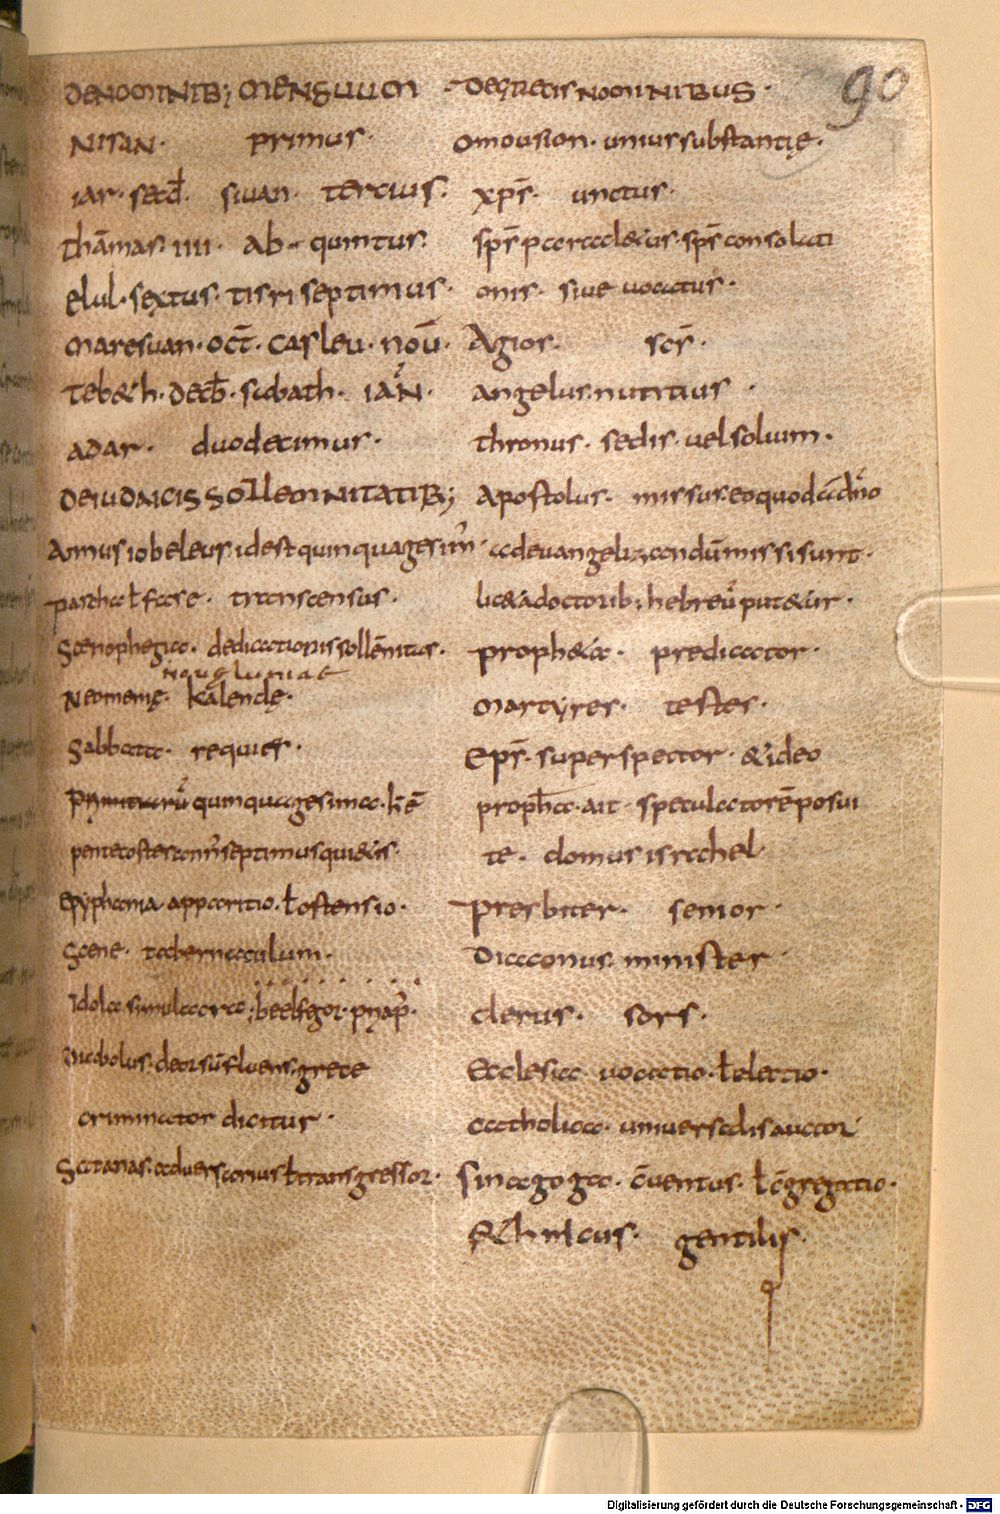 DENOMINIB; MENSUUM
NISAN· primus·
iar· secd̄· siuan· tercius·
thām̄as· IIII· Ab· quintus·
elul· sextus· tisri septimus·
maresuan· oct̄· casleu· nou̅·
tebeth· decb̄· sabath· IAN̄·
ADAR· duodecimus·
DEIUDAICIS SOLLEMNITATIB;
Annus iobeleus· id est quinquagesim̄·
pascha ł fase· transcensus·
Scenophegia· dedicationis sollēnitas·
noue lunae
Neomenię· kalendę·
Sabbata· requies·
quinquagesima· h̄ ē
pentecostes ann̄ septimus qui &
Epyphania apparitio· ł ostensio·
Scene· tabernaculum·
Idola simulacra; beelfegor· priap̄·
Diabolus· deorsū fluens· grece
criminator dicitur·
Satanas· aduersarius ł transgressor·
DE GRECIS NOMINIBUS·
Omousion· unius substantię·
xp̄s· unctus·
sp̄s paraclitus· sp̄s consolati
onis· siue uocatus·
Agios· sc̄s·
angelus· nuntius·
thronus· sedis· uel solium·
Apostolus· missus· eo quod a dn̄o
ad euangelizandum missi sunt·
lic& a doctorib; hebreū put&ur·
proph&a· predicator·
martyres· testes·
Ep̄s· superspector· & ideo
proph̄a· ait· speculatorē posui
te· domus israhel
Presbiter· senior·
Diaconus· minister·
clerus· sors·
Ecclesia uocatio· ł electio·
catholica· uniuersalis auctor
sinagoga· cōuentus· ł cōgregatio·
&hnicus· gentilis·
90
Digitalisierung gefördert durch die Deutsche Forschungsgemeinschaft - DFG